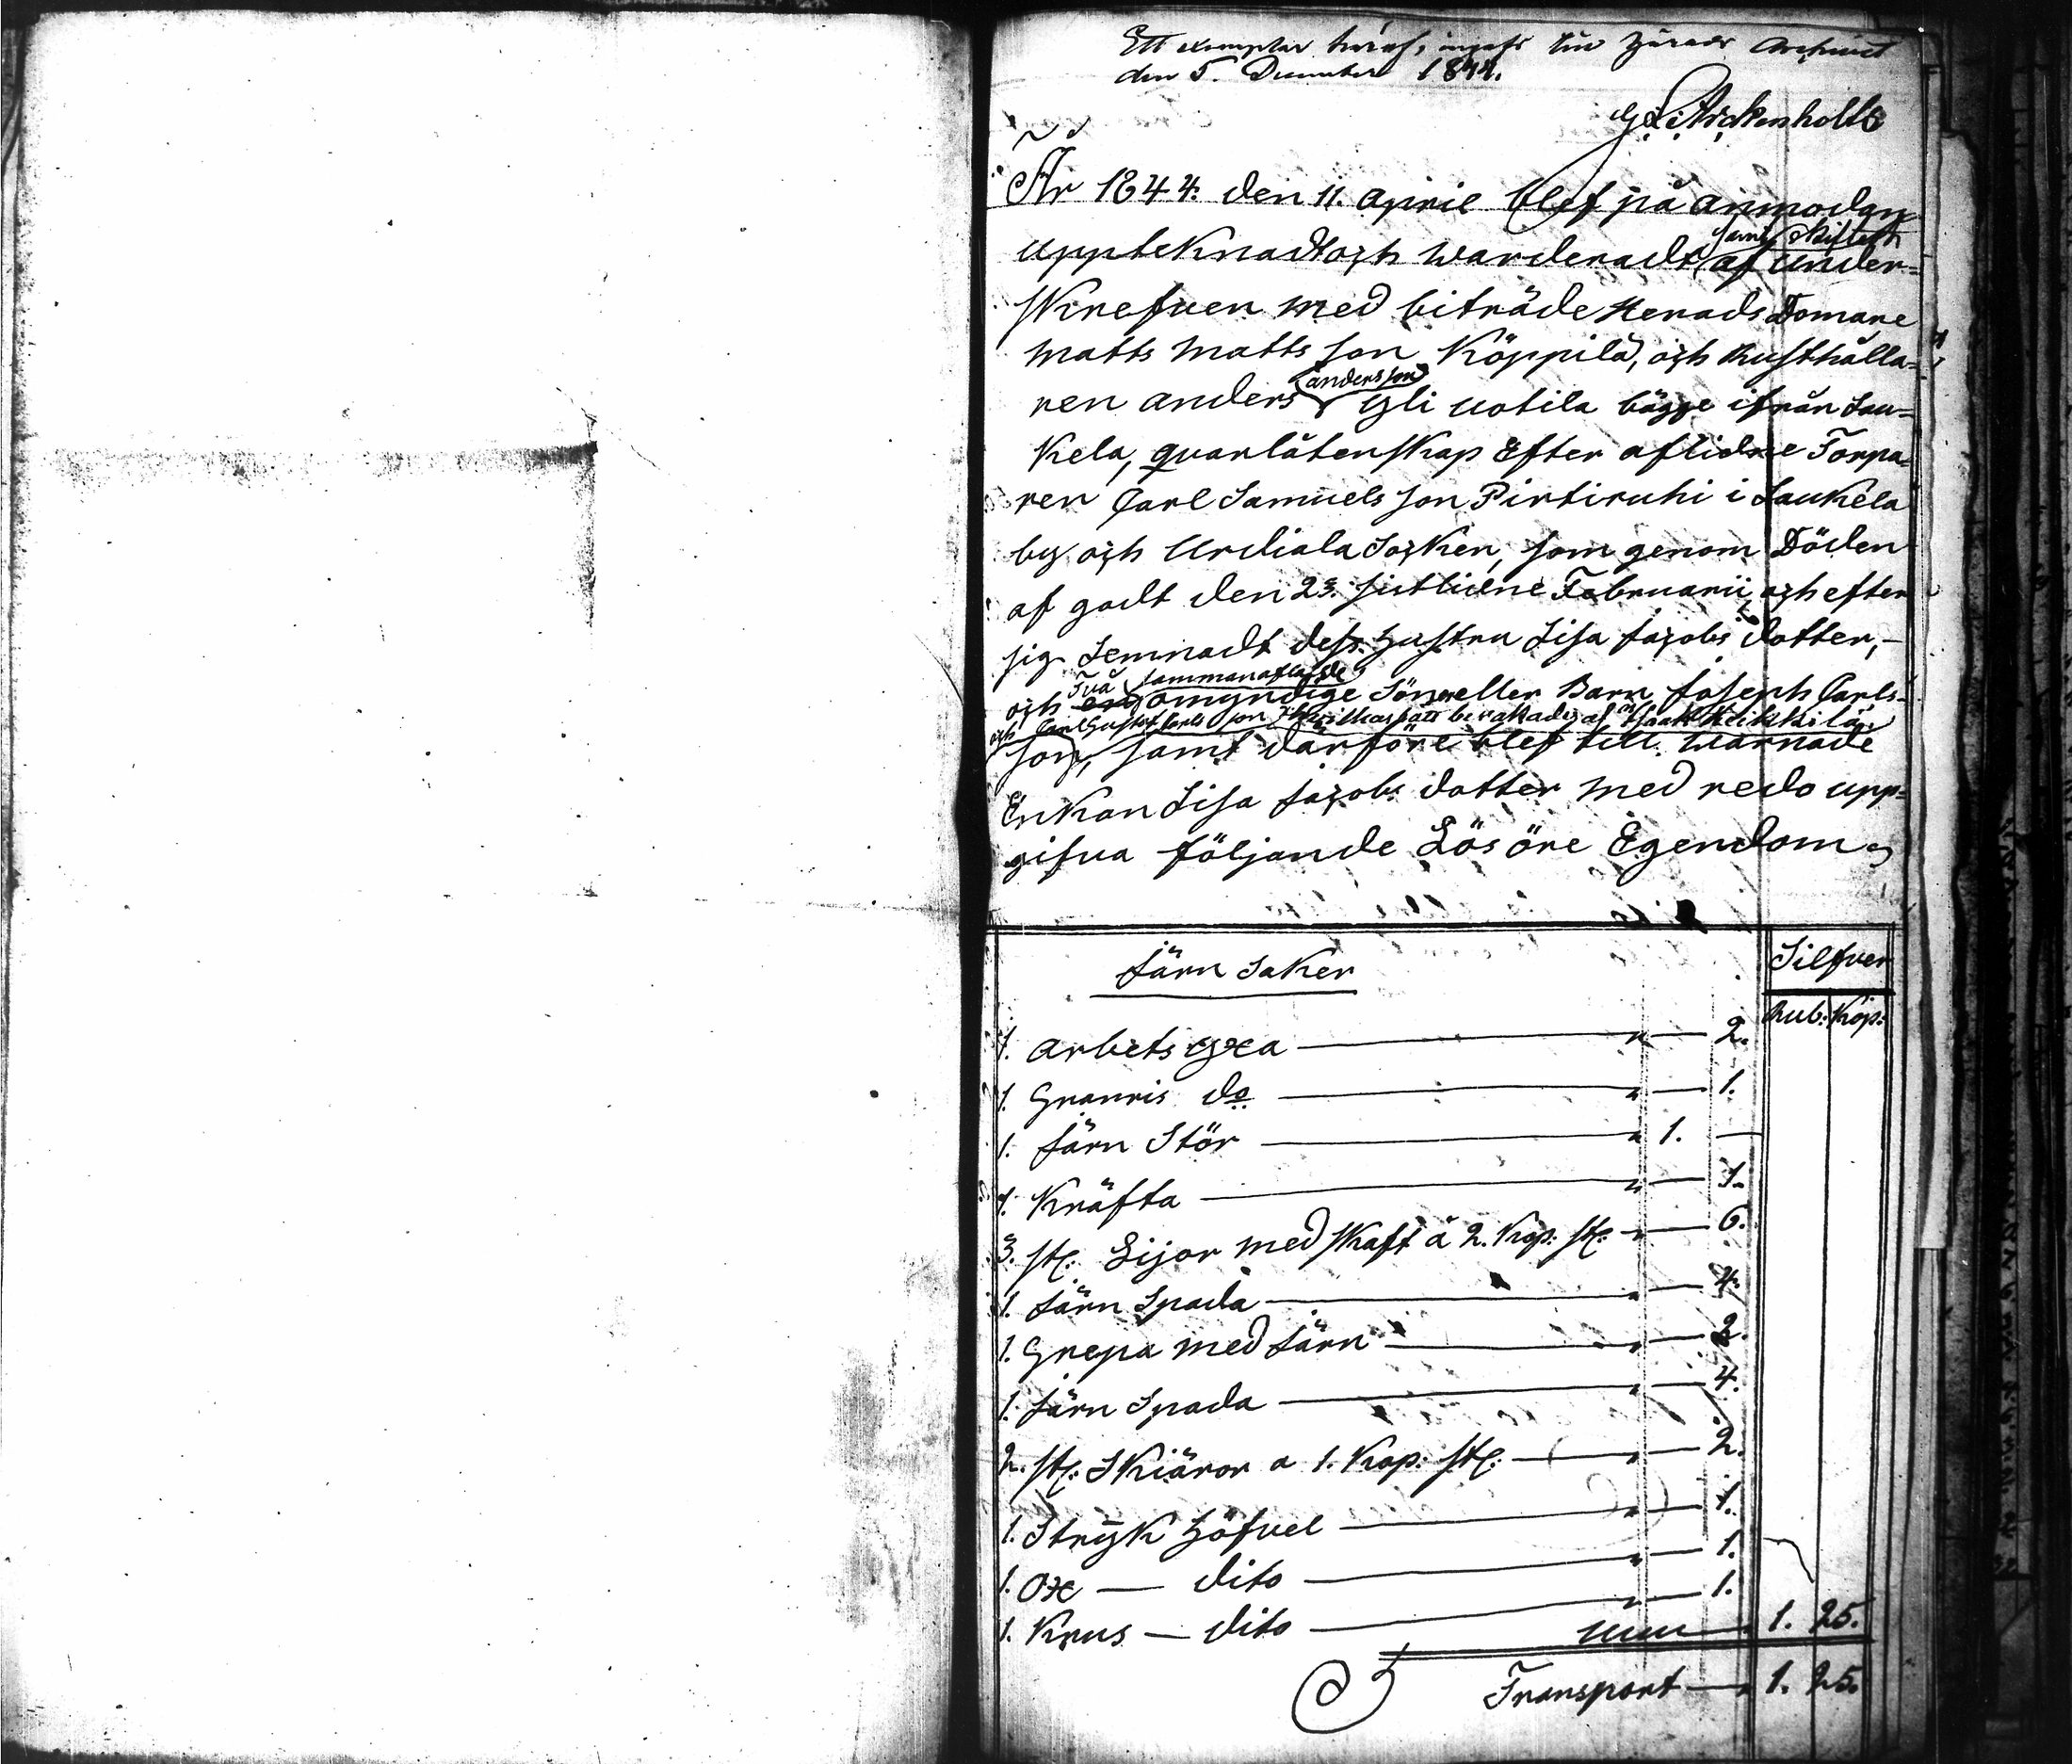 Ett exemplar häraf, ingafs till Härads Archivet
den 5. December 1844.
Arckenholtz
År 1844. den 11. April blef på anmodan
uppteknadt och Warderadt samt skiftett af under=
skrefven med biträde Herads Domare
Matts Matts son Köppilä, och Rusthålla=
ren Anders Andersson Yli Uotila bägge ifrån Lau=
kela, qvarlåtenskap Efter aflidne Torpa
ren Carl Samuels son Pirtiruhi i Laukela
by och Urdiala Socken, som genom Döden
af gådt den 23. sistlidne Februarii och efter
sig Lemnadt dess Hustru Lisa Jacobs dotter, –
Två sammanaflade
och omyndige Söner eller Barn Joseph Carls-
och Carl Gustaf Carls son af Isaak Heikkilä
son, samt därföre blef till warnade
Enkan Lisa Jacobs dotter med redo upp=
gifva följande Lösöre Egendom,
Järn Saker
Silfver
Rub: Kop:
1. Arbets yxa — " — 2.
1. Granris do — " — 1.
1. Järn Stör — " 1. —
1. Kräfta — " — 1.
3. st: Lijor med skaft à 2. Kop: st: " — 6.
1. Järn Spada — " — 4.
1. Grepa med Järn — " — 2.
1. Järn Spada — " — 4.
2. st: Skiäror a 1. Kop: st: — " — 2.
1. Stryk Höfvel — " — 1.
1. Ox — dito — " — 1.
1. Krus — dito — " — 1.
1. 25.
Transport — 1. 25.